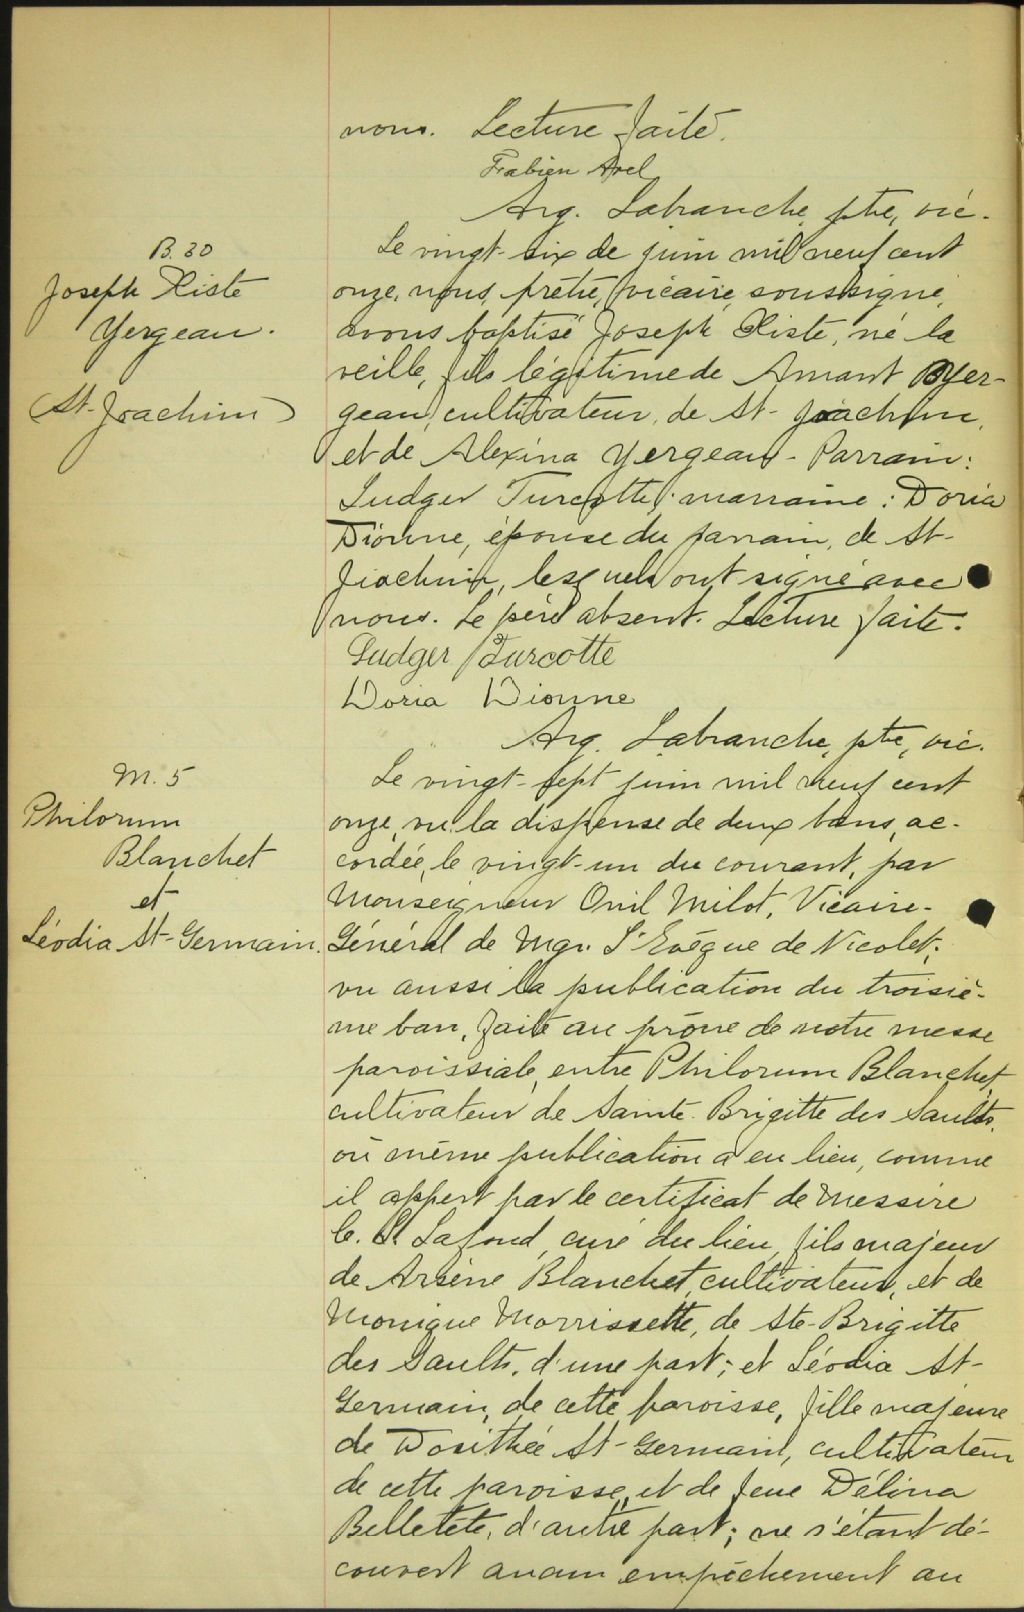 nous. Lecture faite.
Fabien Arel
Arg. Labranche, ptre, vic.
B. 30
Joseph Xiste
Yergeau.
(St-Joachim)
Le vingt-six de juin mil neuf cent
onze, nous, prêtre, vicaire, soussigné,
avons baptisé Joseph Xiste, né la
veille, fils légitime de Amant Yer-
geau, cultivateur, de St-Joachim,
et de Alexina Yergeau - Parrain:
Ludger Turcotte; marraine: Doria
Dionne, épouse du parrain, de St-
Joachim, lesquels ont signé avec
nous. Le père absent. Lecture faite.
Ludger Turcotte
Doria Dionne
Arg. Labranche, ptre, vic.
M. 5
Philorum
Blanchet
et
Léodia St-Germain.
Le vingt-sept juin mil neuf cent
onze, vu la dispense de deux bans, ac-
cordée, le vingt-un du courant, par
Monseigneur Onil Milot, Vicaire-
Général de Mgr. l'Evêque de Nicolet;
vu aussi la publication du troisiè-
me ban, faite au prône de notre messe
paroissiale, entre Philorum Blanchet,
cultivateur de Sainte-Brigitte des Saults,
où même publication a eu lieu, comme
il appert par le certificat de Messire
Lafond, curé du lieu, fils majeur
de Arsène Blanchet, cultivateur, et de
Monique Morrissette, de Ste-Brigitte
des Saults, d'une part; et Léodia St-
Germain, de cette paroisse, fille majeure
de Dosithée St-Germain, cultivateur
de cette paroisse, et de feue Délina
Belletete, d'autre part; ne s'étant dé-
couvert aucun empêchement au